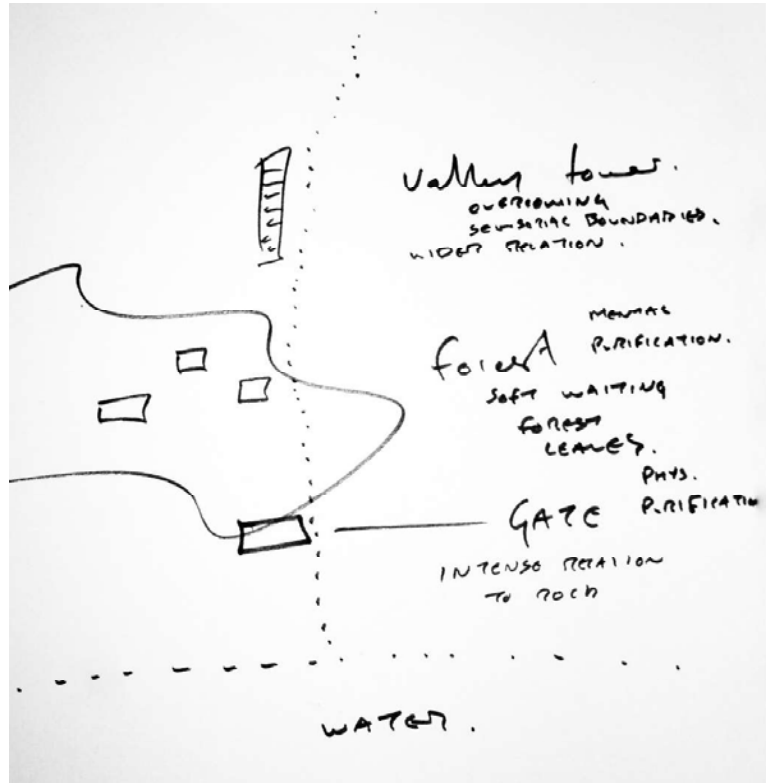 Valley tower.
OVERCOMING
SENSORIAL BOUNDARIES.
WIDER RELATION.
MENTAL
PURIFICATION.
forest
SOFT WAITING
FOREST
LEAVES.
PHYS.
PURIFICATION
GATE
INTENSE RELATION
TO ROCK
WATER.